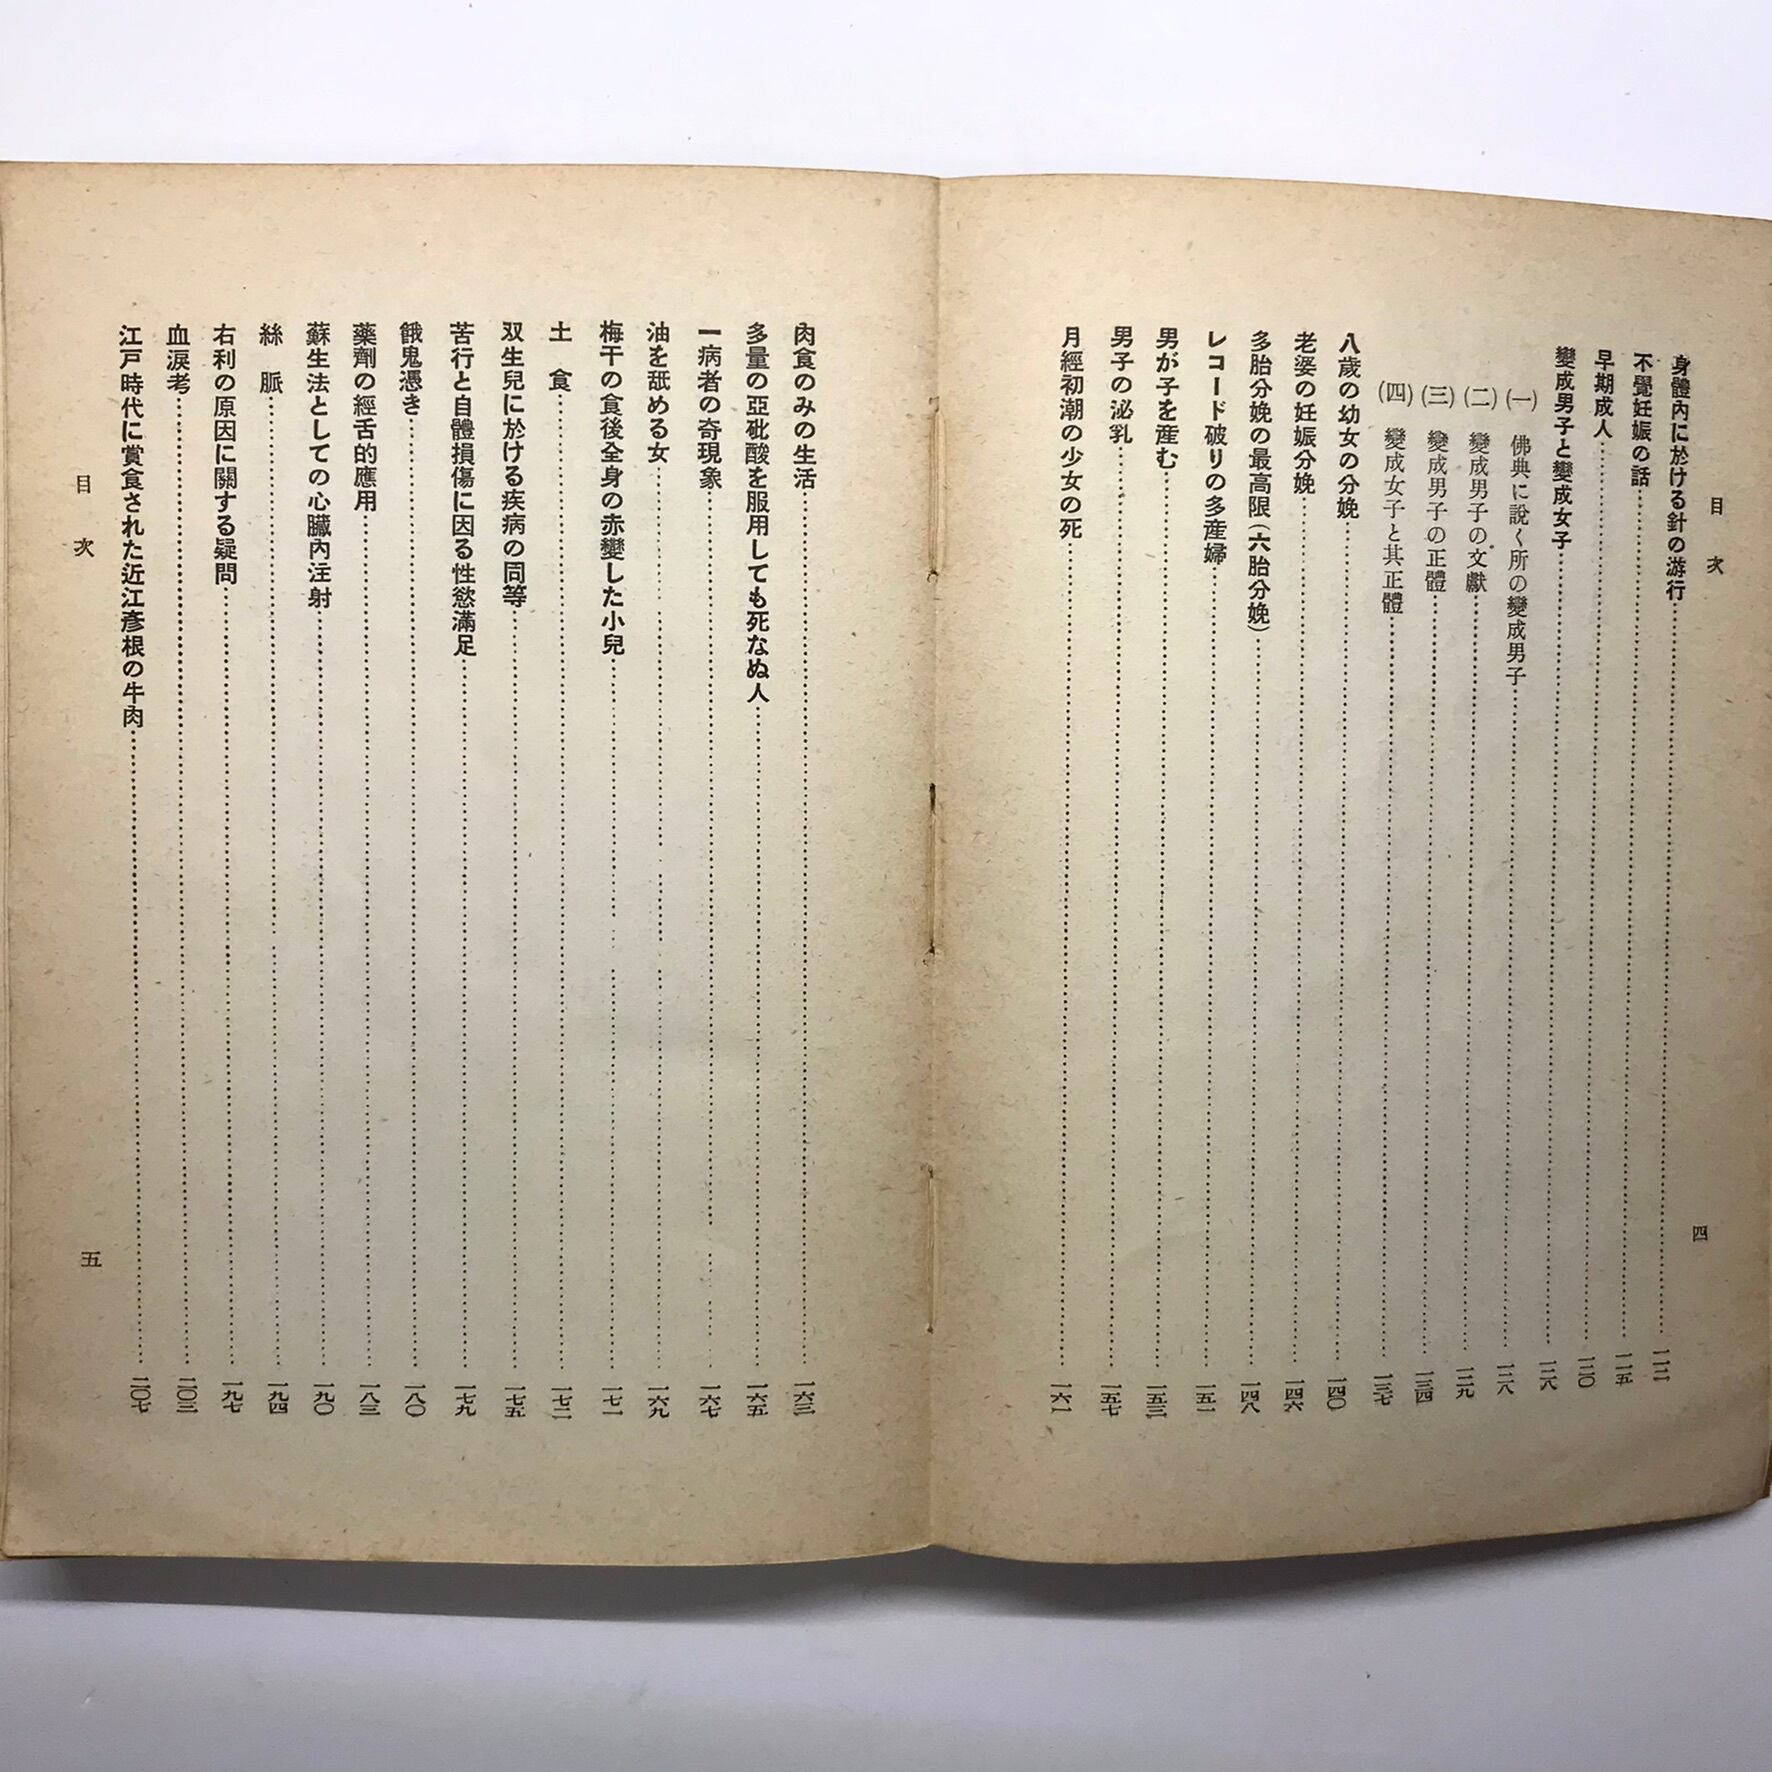 目次
四
身體內に於ける針の游行……一一二
不覺妊娠の話……一一五
早期成人……一二〇
變成男子と變成女子……一二八
(一) 佛典に說く所の變成男子……一二八
(二) 變成男子の文獻……一二九
(三) 變成男子の正體……一三四
(四) 變成女子と其正體……一三七
八歲の幼女の分娩……一四〇
老婆の妊娠分娩……一四六
多胎分娩の最高限(六胎分娩)……一四八
レコード破りの多產婦……一五一
男が子を產む……一五三
男子の泌乳……一五七
月經初潮の少女の死……一六一
肉食のみの生活……一六三
多量の亞砒酸を服用しても死なぬ人……一六五
一病者の奇現象……一六七
油を舐める女……一六九
梅干の食後全身の赤變した小兒……一七一
土食……一七二
双生兒に於ける疾病の同等……一七五
苦行と自體損傷に因る性慾滿足……一七九
餓鬼憑き……一八〇
藥劑の經舌的應用……一八三
蘇生法としての心臟內注射……一九〇
絲脈……一九四
右利の原因に關する疑問……一九七
血淚考……二〇三
江戸時代に賞食された近江彥根の牛肉……二〇七
目次
五